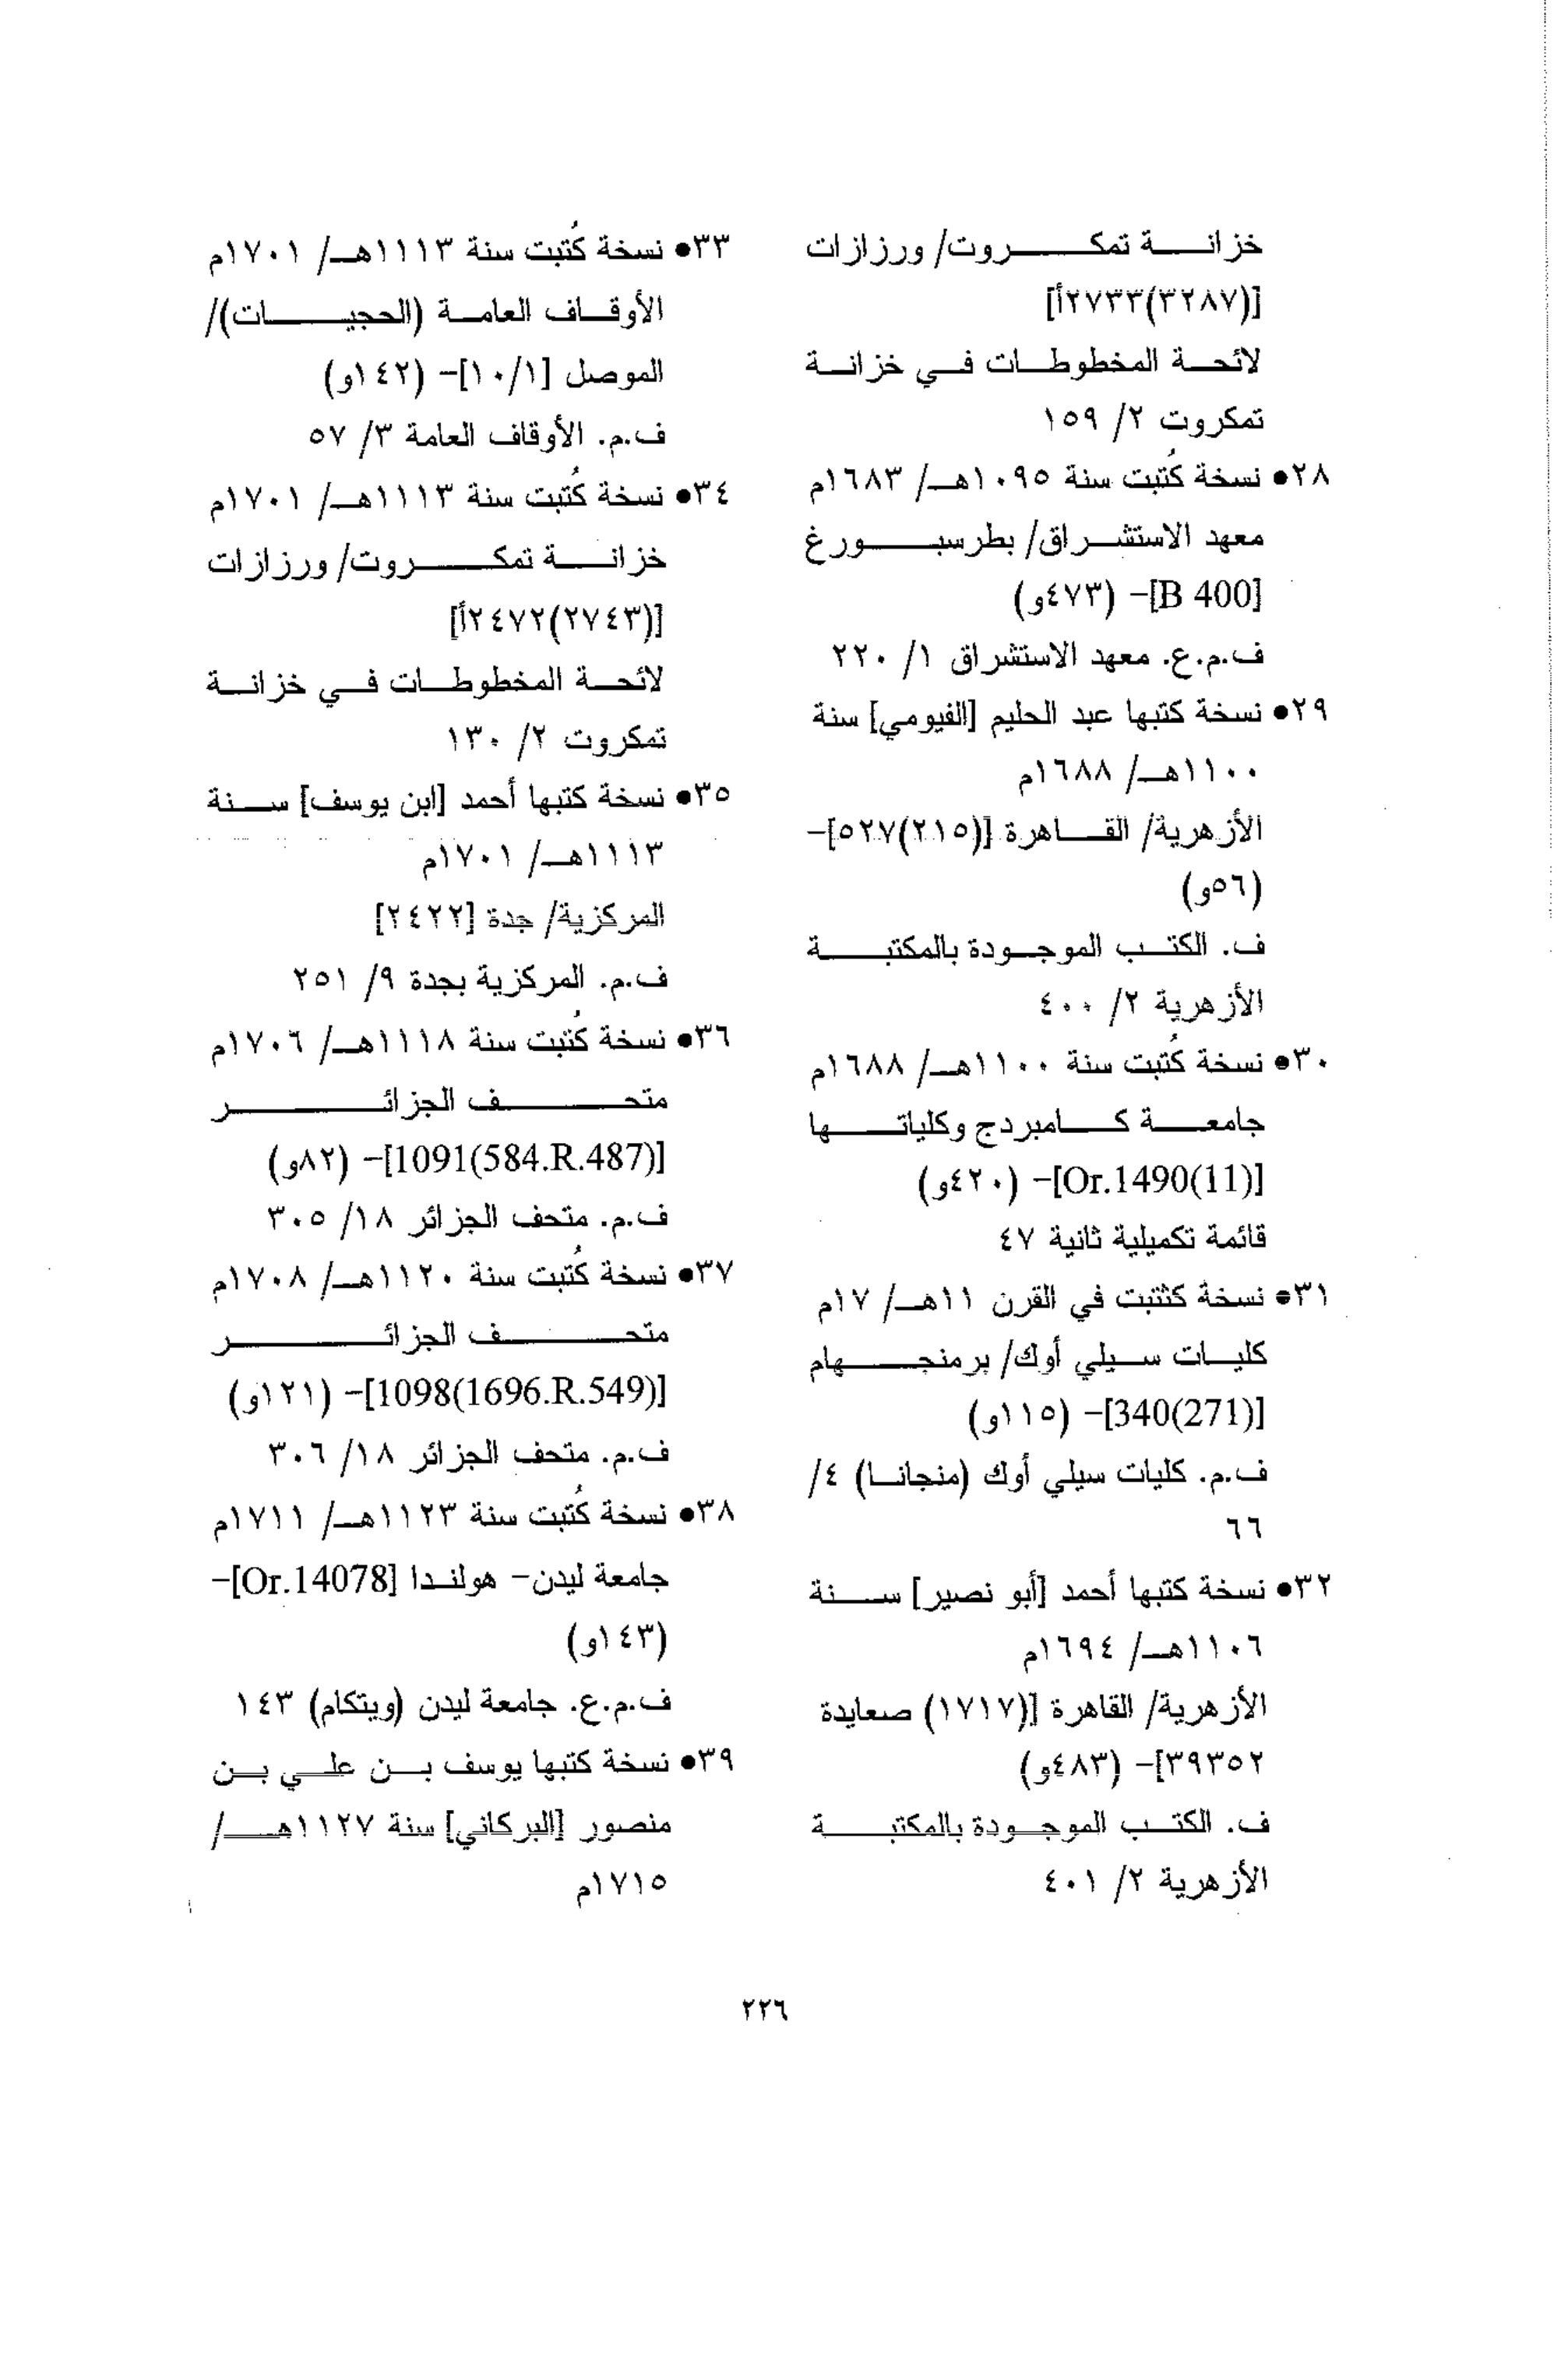 خزانة تمكروت/ ورزازات
[(٣٢٨٧)٢٧٣٣أ]
لائحة المخطوطات في خزانة
تمكروت ٢/ ١٥٩
٢٨• نسخة كُتبت سنة ١٠٩٥هـ/ ١٦٨٣م
معهد الاستشراق/ بطرسبورغ
[B 400]- (٤٧٣و)
ف.م.ع. معهد الاستشراق ١/ ٢٢٠
٢٩• نسخة كتبها عبد الحليم [الفيومي] سنة
١١٠٠هـ/ ١٦٨٨م
الأزهرية/ القاهرة [(٢١٥)٥٢٧]-
(٥٦و)
ف. الكتب الموجودة بالمكتبة
الأزهرية ٢/ ٤٠٠
٣٠• نسخة كُتبت سنة ١١٠٠هـ/ ١٦٨٨م
جامعة كامبردج وكلياتها
[Or.1490(11)]- (٤٢٠و)
قائمة تكميلية ثانية ٤٧
٣١• نسخة كثتبت في القرن ١١هـ/ ١٧م
كليات سيلي أوك/ برمنجهام
[340(271)]- (١١٥و)
ف.م. كليات سيلي أوك (منجانا) ٤/
٦٦
٣٢• نسخة كتبها أحمد [أبو نصير] سنة
١١٠٦هـ/ ١٦٩٤م
الأزهرية/ القاهرة [(١٧١٧) صعايدة
٣٩٣٥٢]- (٤٨٣و)
ف. الكتب الموجودة بالمكتبة
الأزهرية ٢/ ٤٠١
٣٣• نسخة كُتبت سنة ١١١٣هـ/ ١٧٠١م
الأوقاف العامة (الحجيات)/
الموصل [١٠/١]- (١٤٢و)
ف.م. الأوقاف العامة ٣/ ٥٧
٣٤• نسخة كُتبت سنة ١١١٣هـ/ ١٧٠١م
خزانة تمكروت/ ورزازات
[(٢٧٤٣)٢٤٧٢أ]
لائحة المخطوطات في خزانة
تمكروت ٢/ ١٣٠
٣٥• نسخة كتبها أحمد [ابن يوسف] سنة
١١١٣هـ/ ١٧٠١م
المركزية/ جدة [٢٤٢٢]
ف.م. المركزية بجدة ٩/ ٢٥١
٣٦• نسخة كُتبت سنة ١١١٨هـ/ ١٧٠٦م
متحف الجزائر
[1091(584.R.487)]- (٨٢و)
ف.م. متحف الجزائر ١٨/ ٣٠٥
٣٧• نسخة كُتبت سنة ١١٢٠هـ/ ١٧٠٨م
متحف الجزائر
[1098(1696.R.549)]- (١٢١و)
ف.م. متحف الجزائر ١٨/ ٣٠٦
٣٨• نسخة كُتبت سنة ١١٢٣هـ/ ١٧١١م
جامعة ليدن- هولندا [Or.14078]-
(١٤٣و)
ف.م.ع. جامعة ليدن (ويتكام) ١٤٣
٣٩• نسخة كتبها يوسف بن علي بن
منصور [البركاني] سنة ١١٢٧هـ/
١٧١٥م
٢٢٦